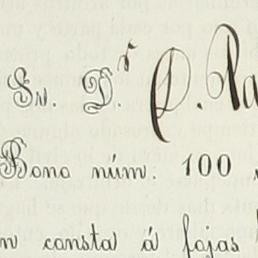 Sr. D.r P. Pa
Bono núm. 100
n consta á fojas